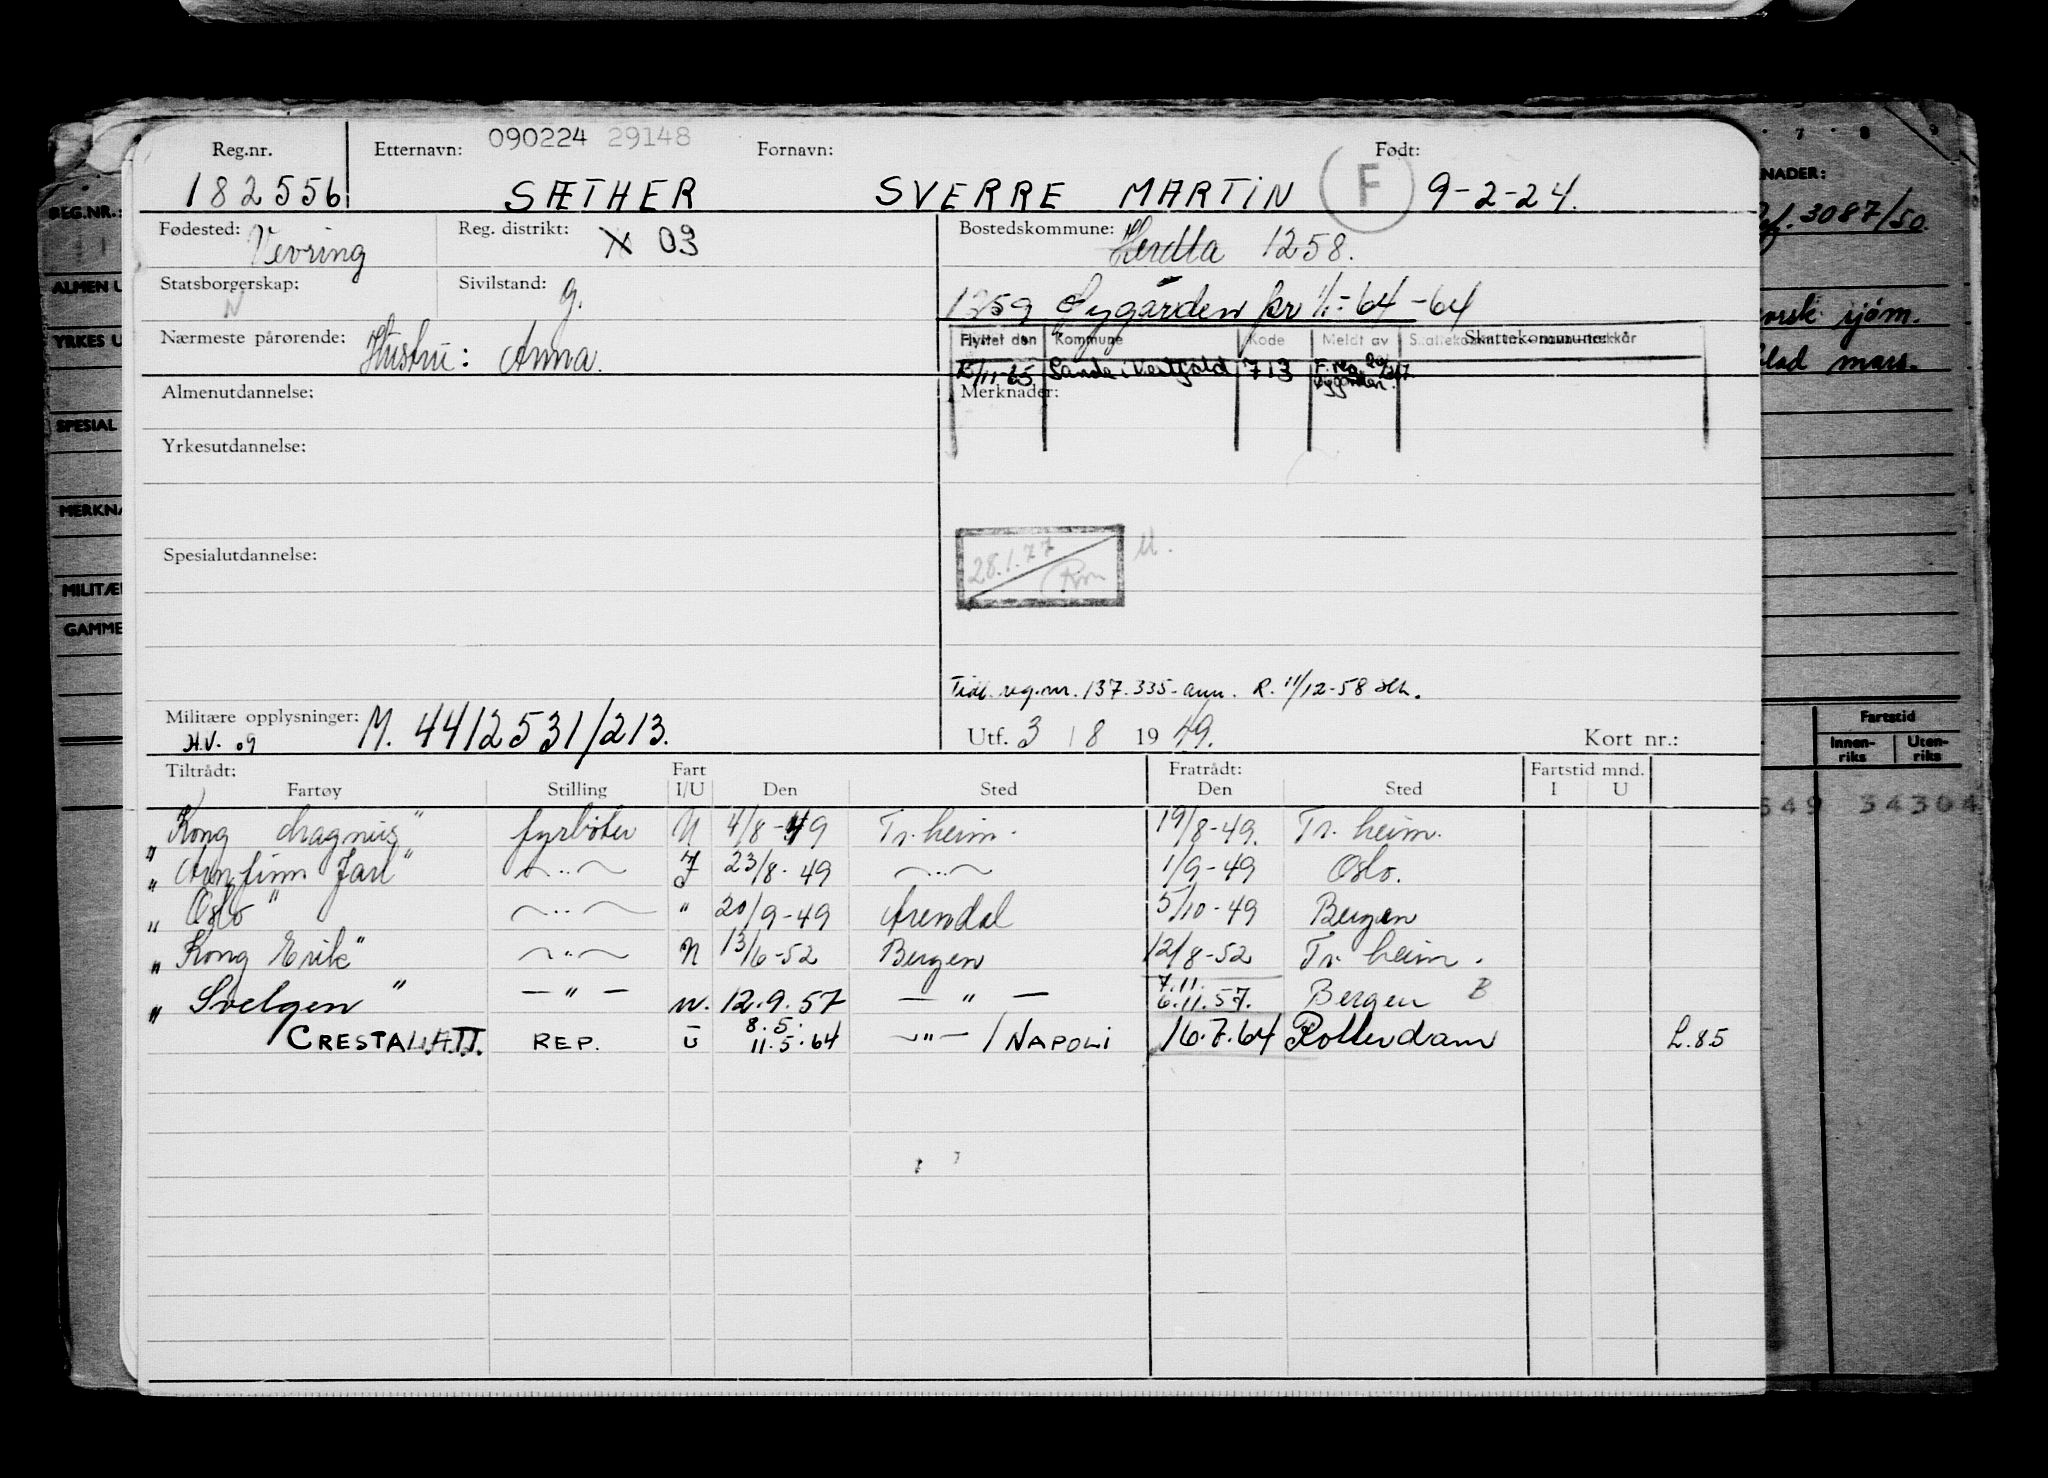 Reg.nr. Etternavn: 090224 29148 Fornavn: Født:
182556 SÆTHER SVERRE MARTIN F 9-2-24.
Fødested: Vevring Reg. distrikt: X 03 Bostedskommune: Herdla 1258.
Statsborgerskap: N Sivilstand: g. 1259 Øygarden fr 1/1-64 -64
Nærmeste pårørende: Hustru: Anna.
Flyttet den Kommune Kode Meldt av Skattekommune
/11-65 Sande i Vestfold 713 F. reg. Øygarden
Almenutdannelse: Merknader:
Yrkesutdannelse:
Spesialutdannelse:
28.1.77
Tidl. reg.nr. 137.335- ann. R. 11/12-58
Militære opplysninger: M. 4412531/213.
H.V. 09
Utf. 3 / 8 1949. Kort nr.:
Tiltrådt: Fart Fratrådt: Fartstid mnd.
Fartøy Stilling I/U Den Sted Den Sted I U
"Kong Magnus" fyrbøter U 4/8-49 Tr.heim. 19/8-49. Tr. heim.
"Arnfinn Jarl" —"— I 23/8-49 —"— 1/9-49 Oslo.
"Oslo" —"— " 20/9-49 Arendal 5/10-49 Bergen
"Kong Erik" —"— U 13/6-52 Bergen 12/8-52 Tr. heim.
7.11.
"Svelgen" —"— u. 12.9.57 —"— 6.11.57. Bergen B
8.5.
CRESTA L.A.TT. REP. U 11.5.64 —"— / NAPOLI 16.7.64 Rotterdam L.85
REG.NR.:
ALMEN U
YRKES U
SPESIAL
MERKNA
MILITÆR
GAMME
7 8 9
KNADER:
3087/50
norsk sjøm.
blad mars.
Fartstid
Innen-riks Uten-riks
649 34304